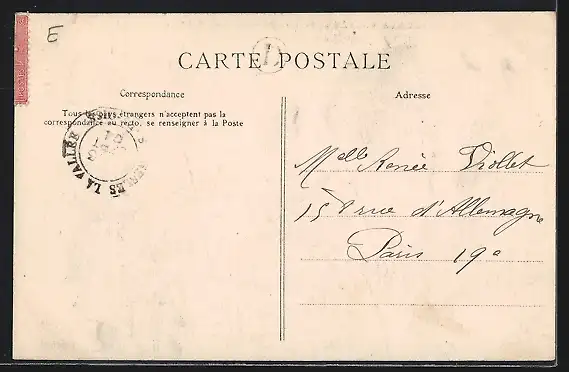 E
CARTE POSTALE
Correspondance
Adresse
Tous les pays étrangers n'acceptent pas la
correspondance au recto, se renseigner à la Poste
LA VALLÉE
Melle Renée Viollet
rue d'Allemagne
Paris 19e